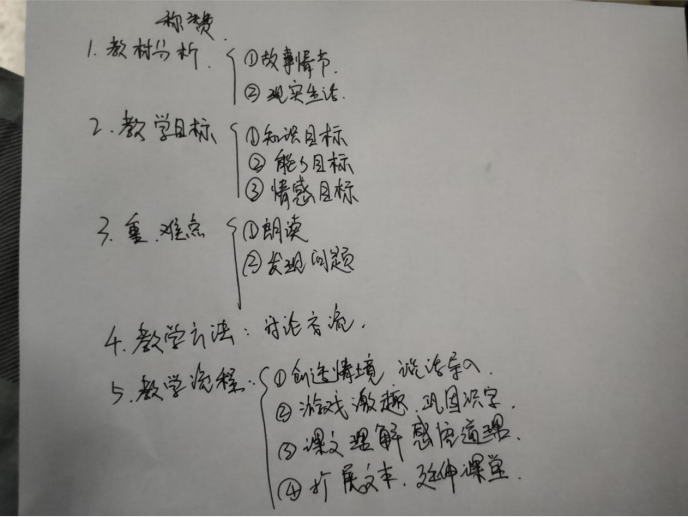 称赞
1. 教材分析 ①故事情节.
②现实生活.
2. 教学目标 ①知识目标
②能力目标
③情感目标
3. 重、难点 ①朗读
②发现问题
4. 教学方法：讨论交流.
5. 教学流程： ①创造情境 谈话导入.
②游戏激趣.巩固识字.
③课文理解 感悟道理.
④扩展文本.延伸课堂.